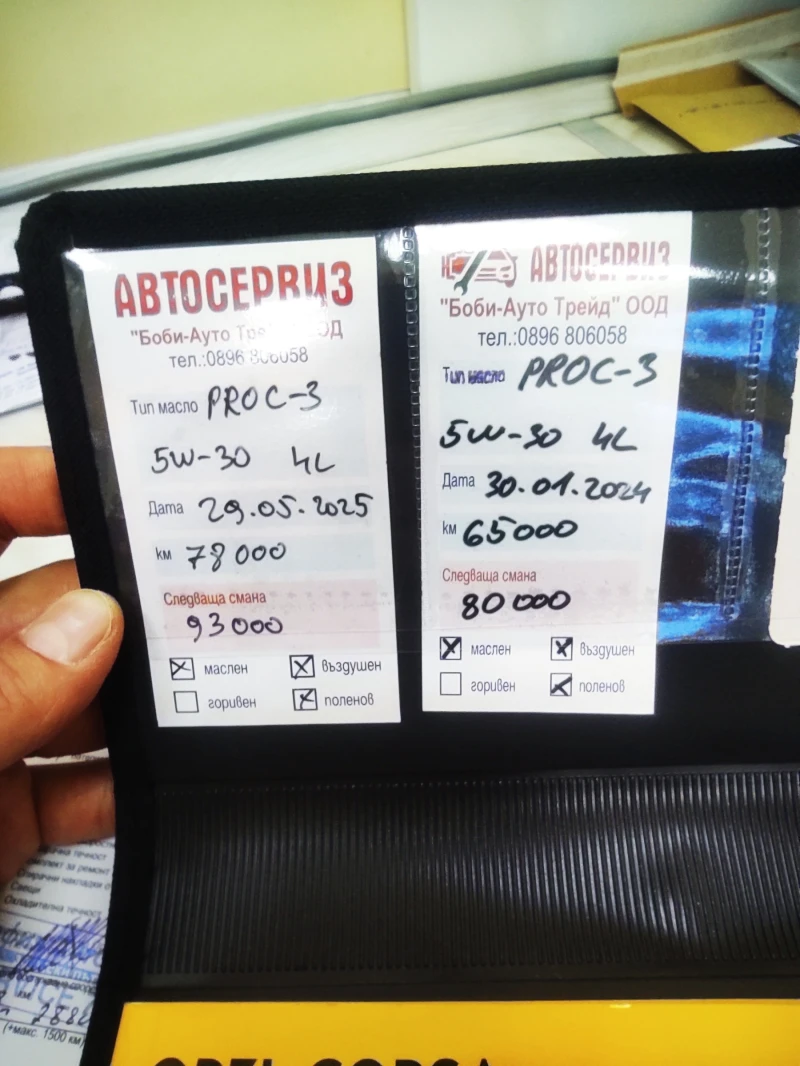 АВТОСЕРВИЗ
"Боби-Ауто Трейд" ООД
тел.:0896 806058
Тип масло PROC-3
5W-30 4L
Дата 29.05.2025
км 78000
Следваща смана
93000
маслен въздушен
горивен поленов
АВТОСЕРВИЗ
"Боби-Ауто Трейд" ООД
тел.:0896 806058
Тип масло PROC-3
5W-30 4L
Дата 30.01.2024
км 65000
Следваща смана
80000
маслен въздушен
горивен поленов
течност
за ремонт
Спирачни накладки
Свещи
Охладителна течност
км
(+макс. 1500 км)
OPEL CORSA